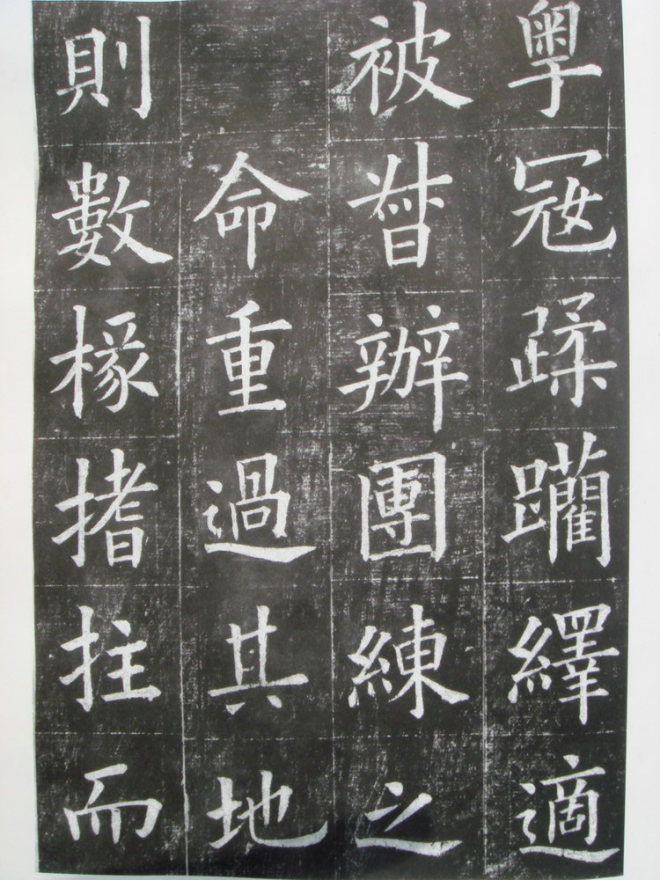 粵冦蹂躪繹適
被督辦團練之
命重過其地
則數椽搘拄而